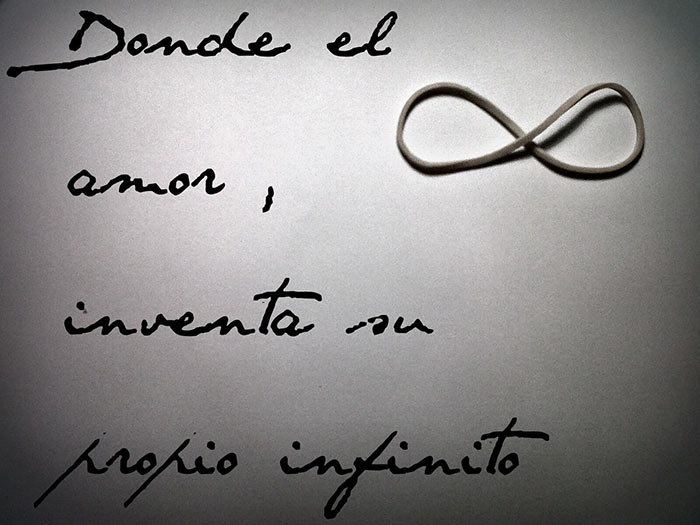 Donde el
amor,
inventa su
propio infinito